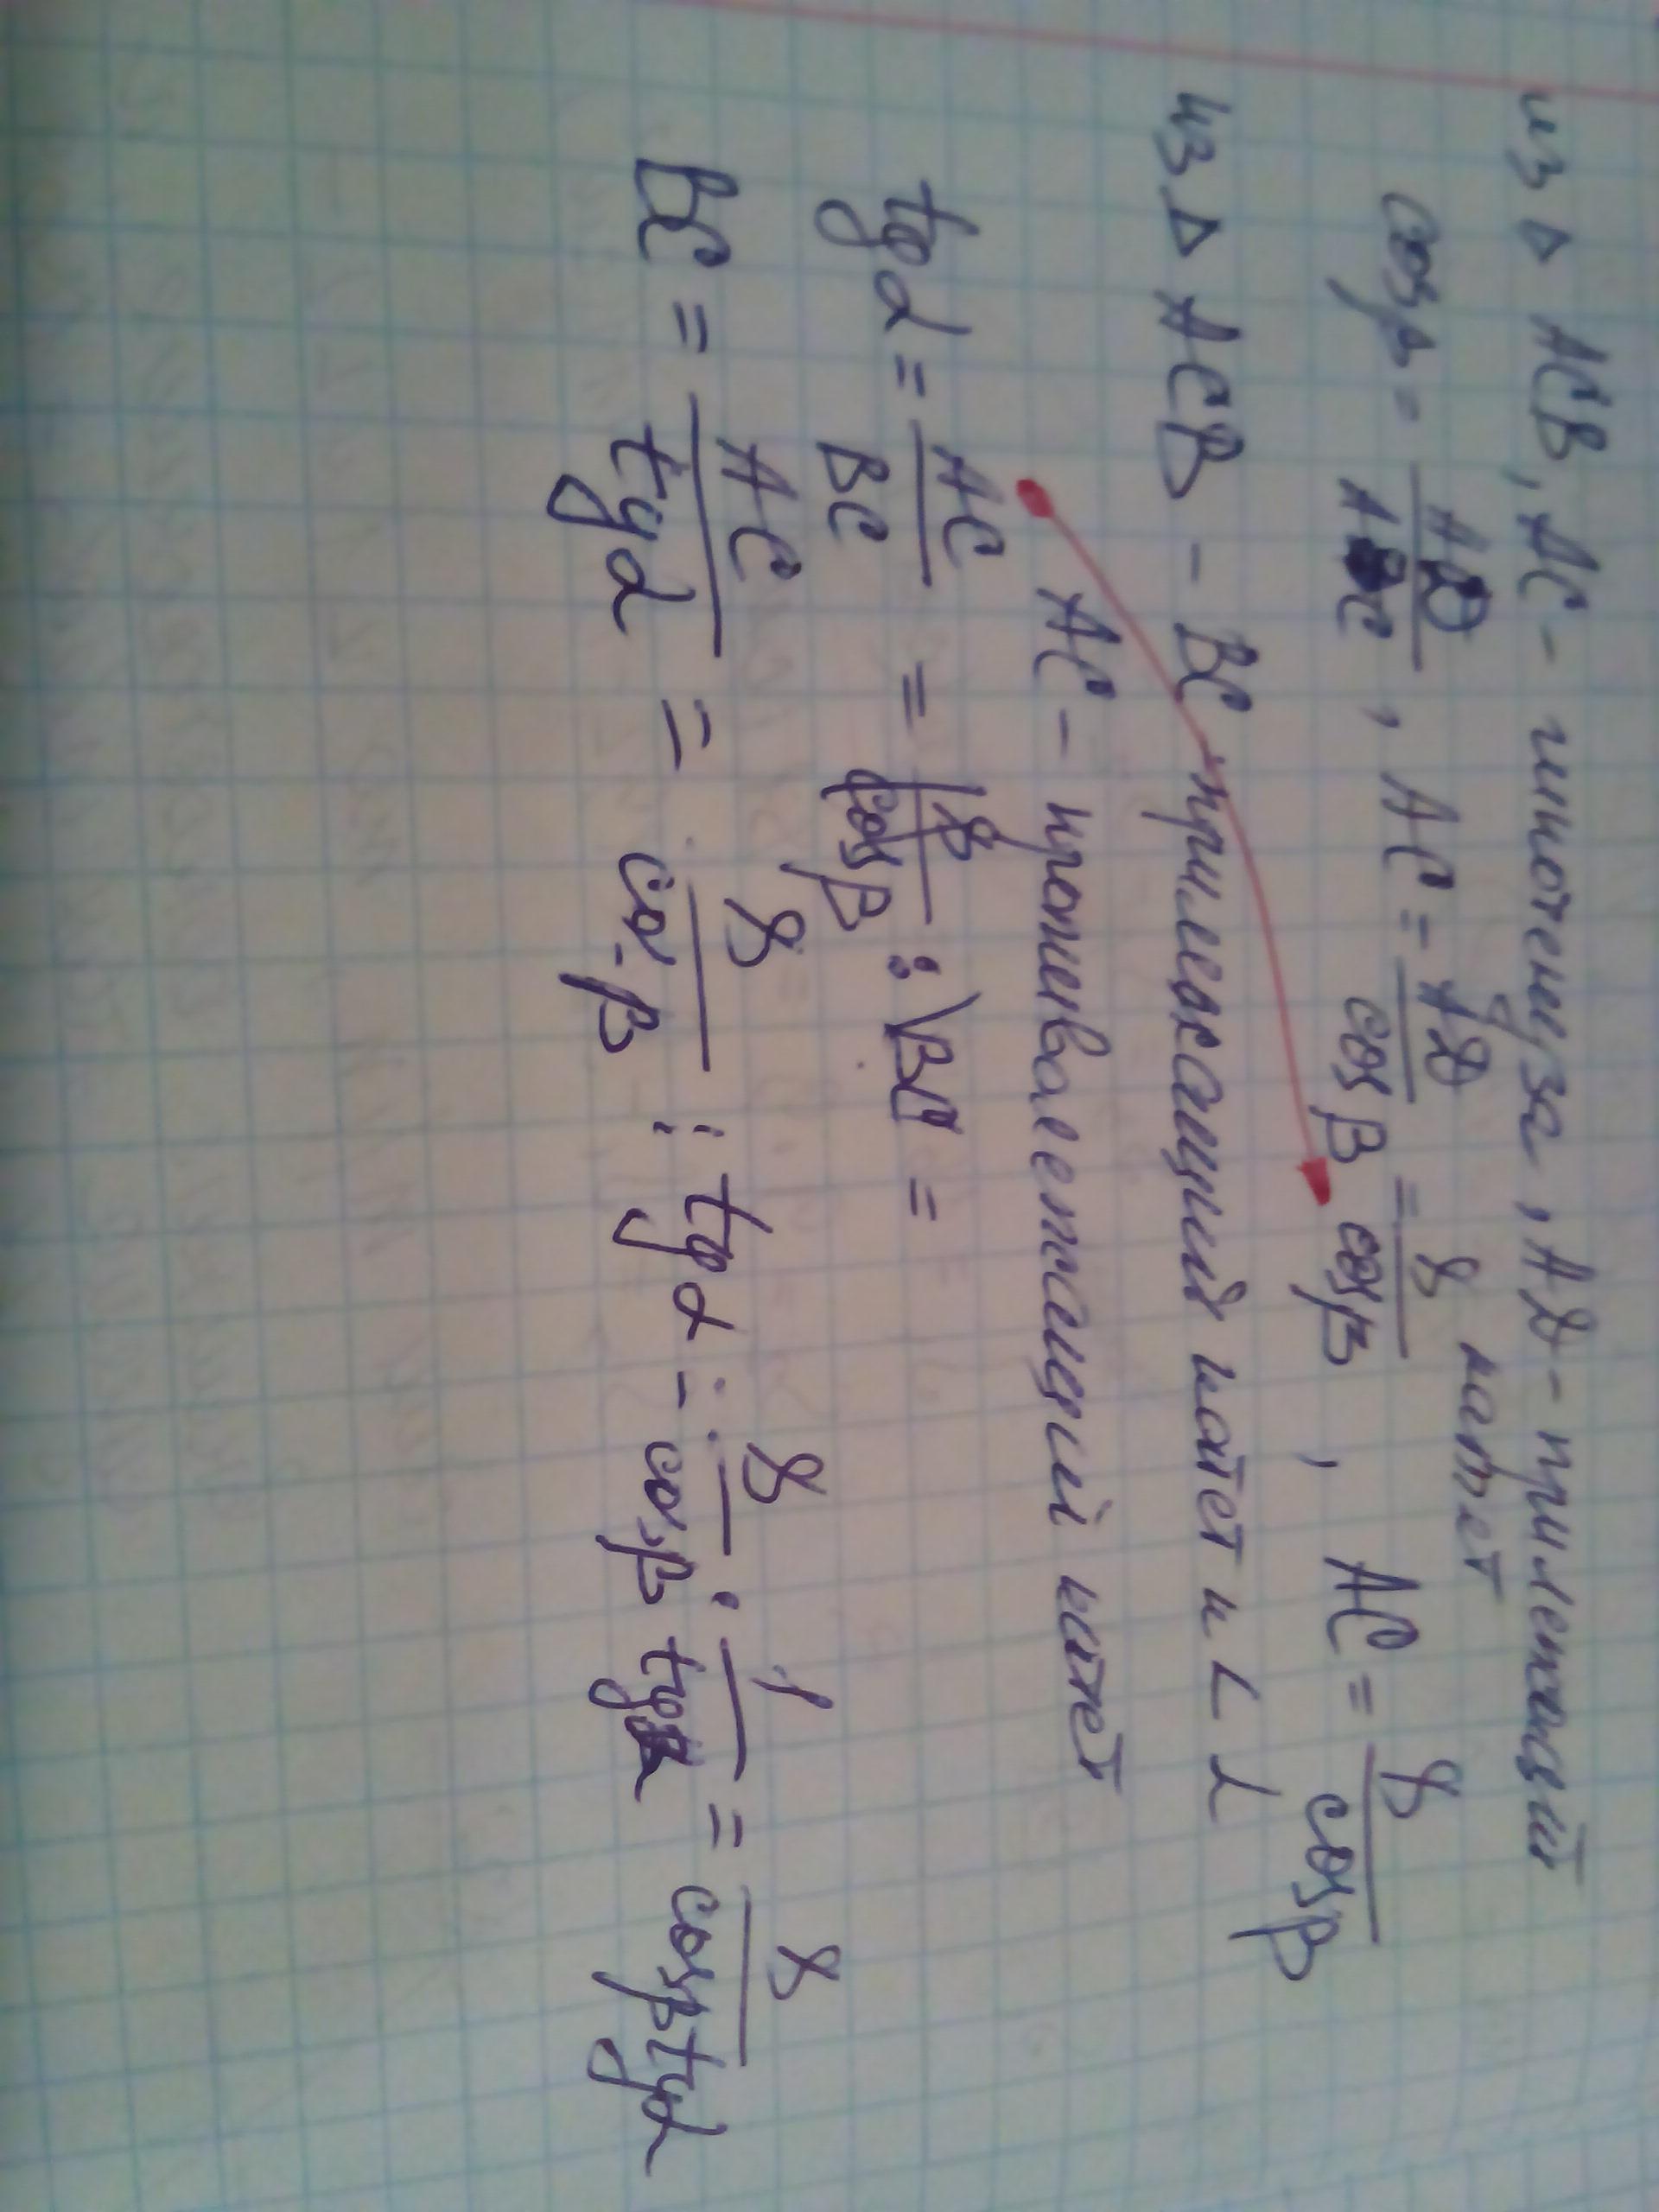 из Δ ACB, AC - гипотенуза, AD - прилежащий
катет
cosβ = AD/AC, AC = AD/cosβ = 8/cosβ, AC = 8/cosβ
из Δ ACB - BC прилежащий катет и ∠ α
AC - противолежащий катет
tgα = AC/BC = 8/cosβ : BC =
BC = AC/tgα = 8/cosβ : tgα = 8/cosβ · 1/tgα = 8/cosβtgα